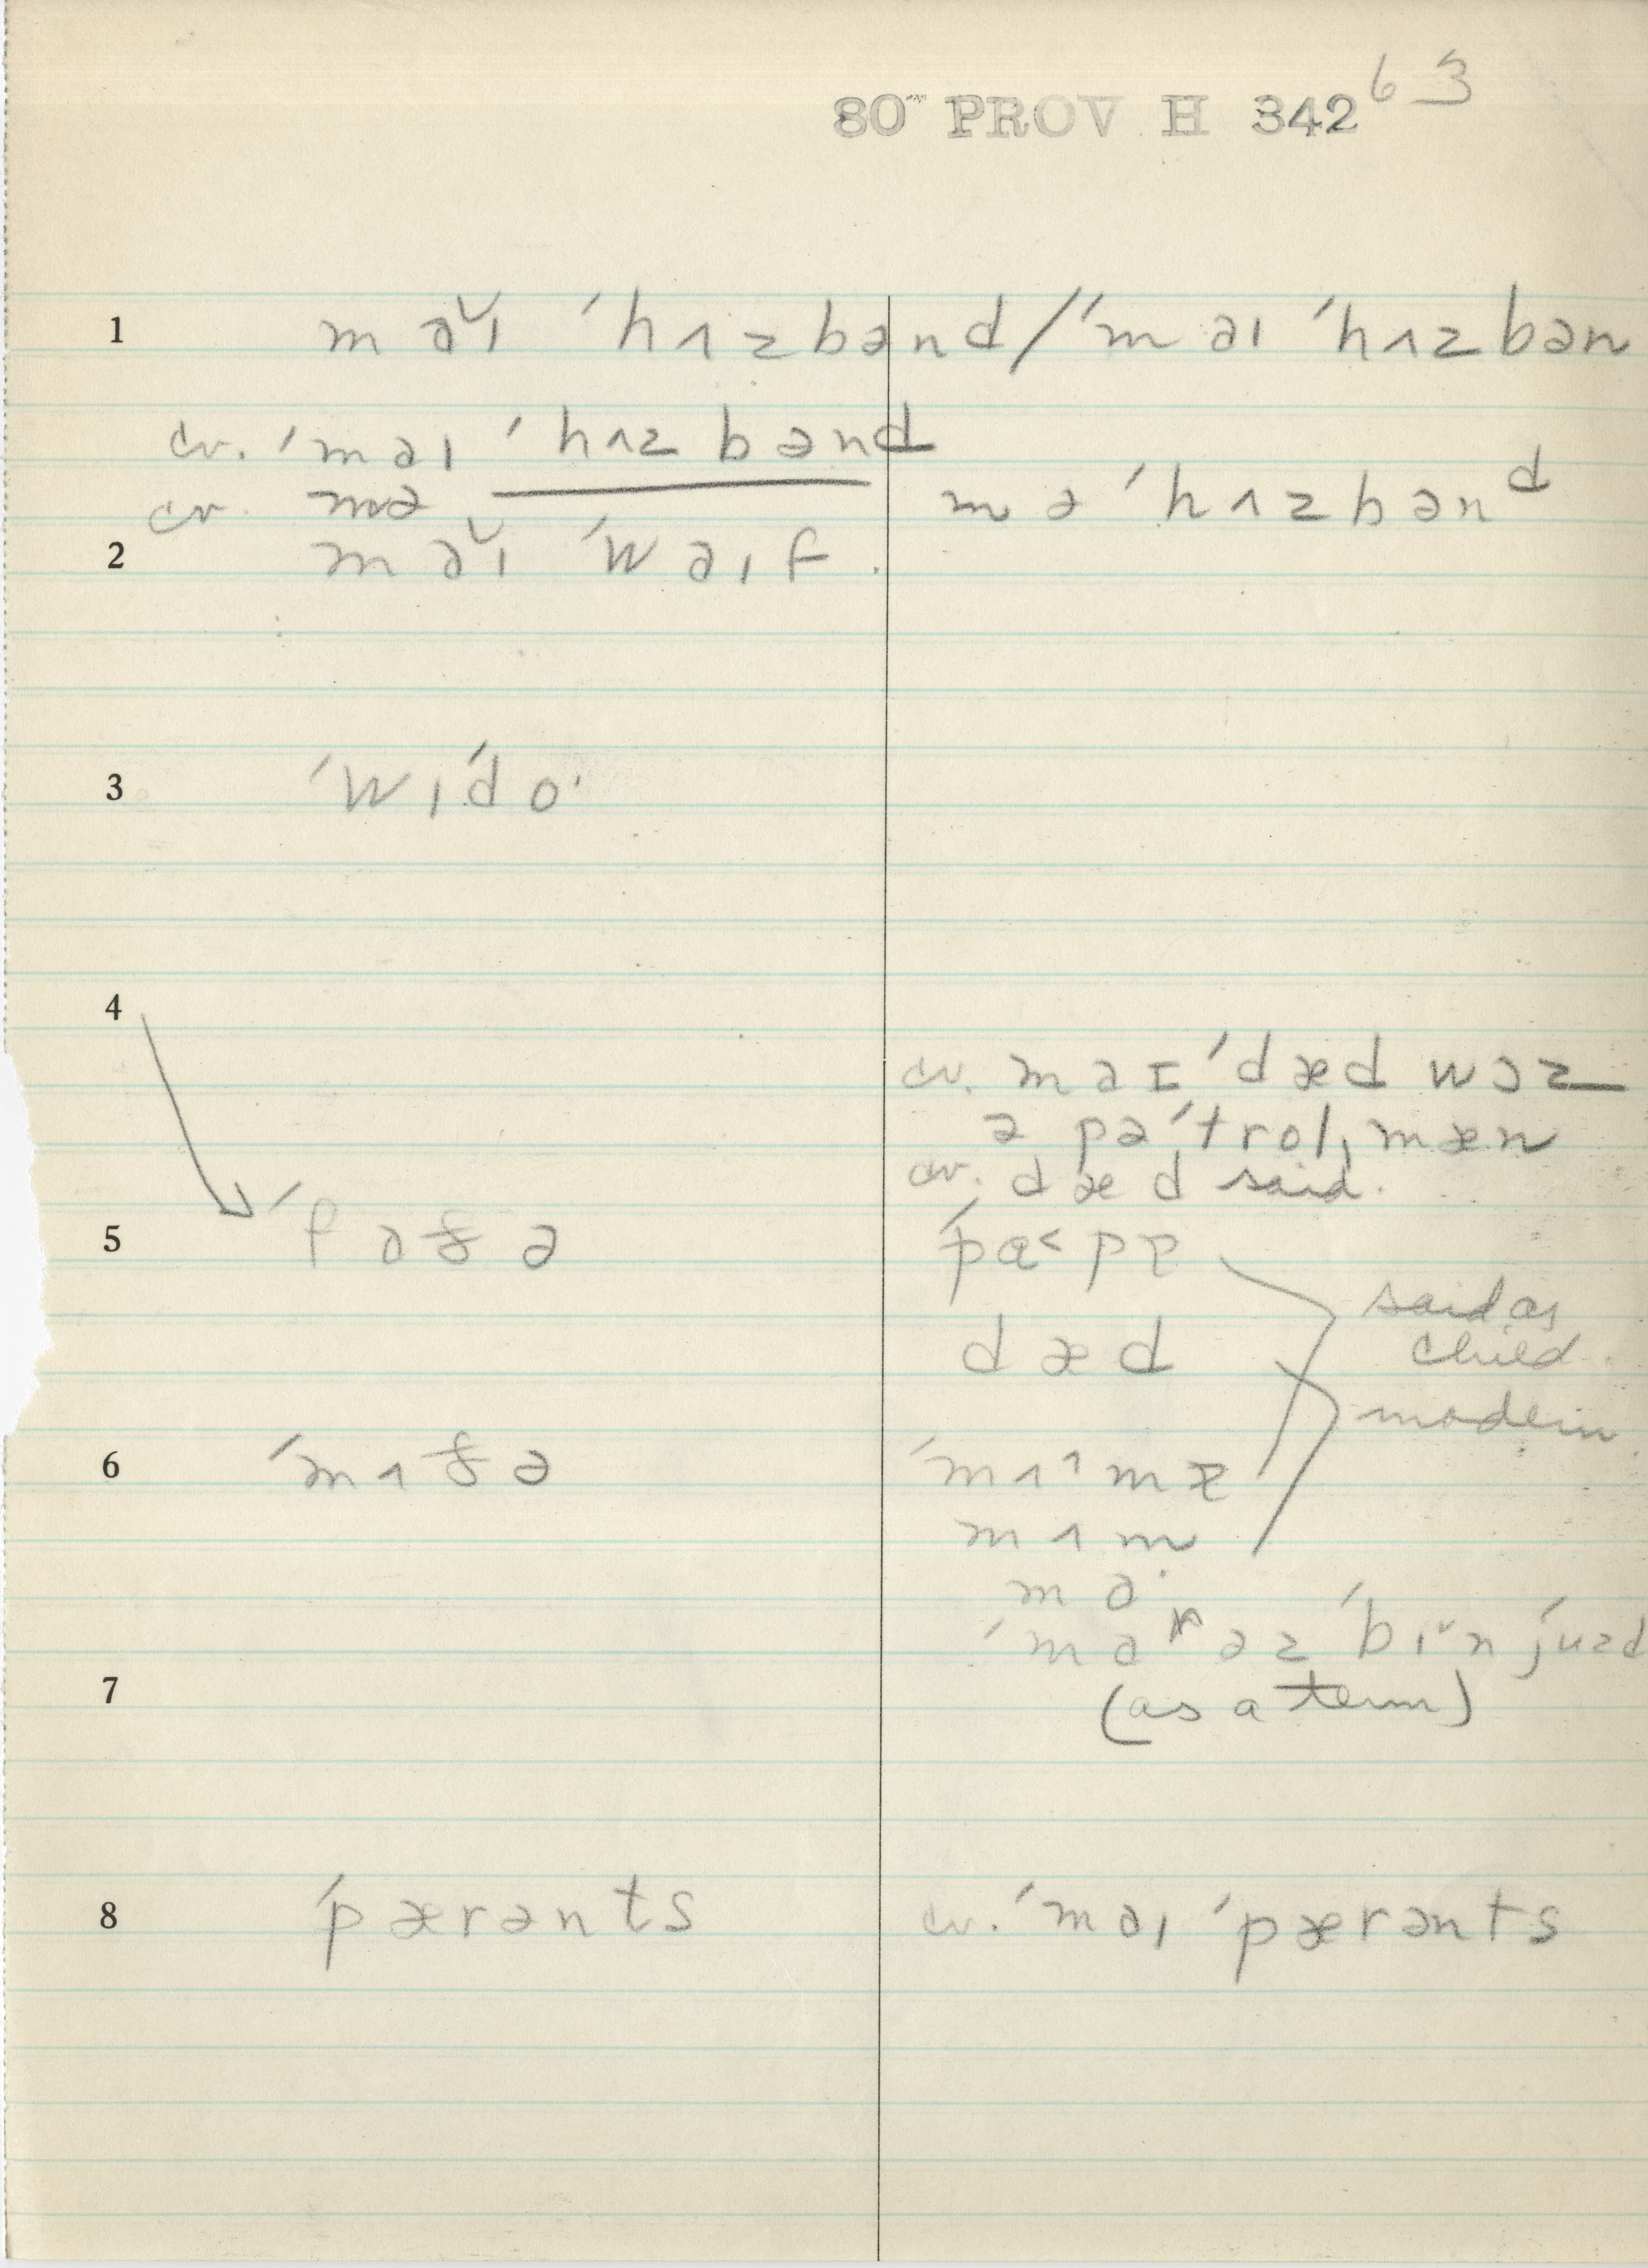 80 PROV H 342 63
1 ma˅ɪ ˈhʌzbənd/ˈmaɪ ˈhʌzbən
cv. ˈmaɪ ˈhʌzbənd
cv. mə mə ˈhʌzbənᵈ
2 ma˅ɪ ˈwaɪf
3 ˈwɪˈdo·
4
cv. maɪ ˈdæd wəz
ə pəˈtrolˌmæn
cv. dæd said.
5 ˈfaðə ˈpa˂pɐ
said as
dæd child.
modern
6 ˈmʌðə ˈmʌ˄mɐ
mʌm
ma·
ˈmaʳ əz ˈbɪ˅n juzd
7 (as a term)
8 ˈpærənts cv. ˈmaɪ ˈpærənts